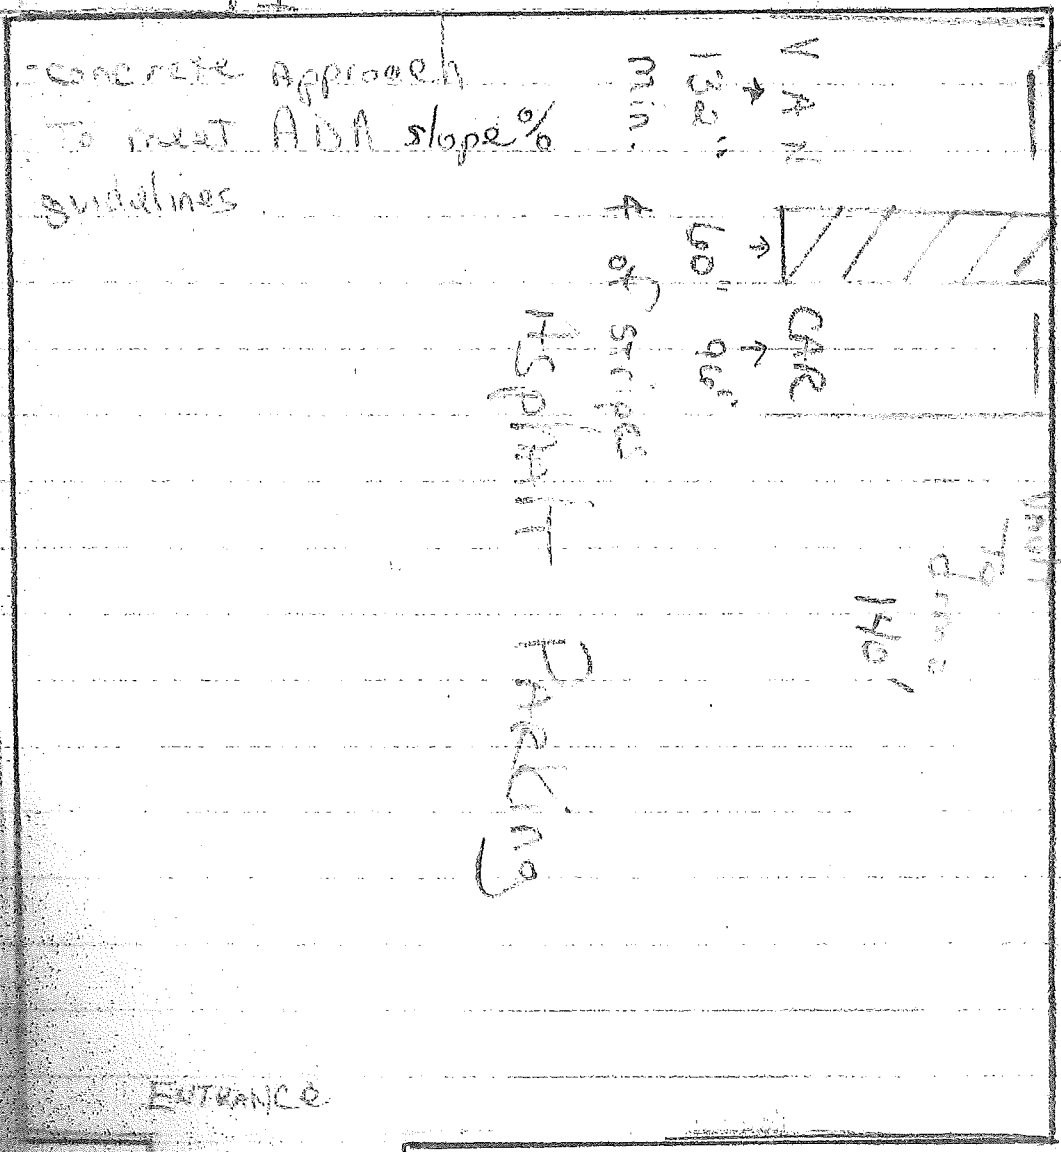 -concrete Approach
To meet ADA slope %
guidelines
VAN
132"
min.
60"
CAR
96"
¢ of stripes
ASphAlT PArking
To
140'
ENTRANCE